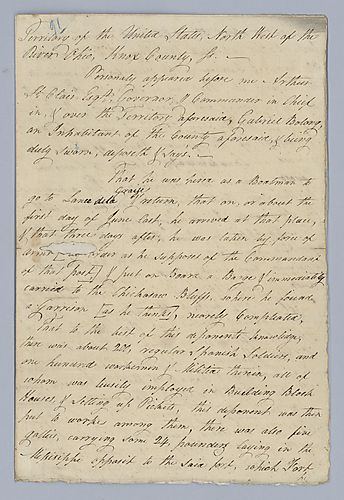 91
Territory of the United States, North West of the
River Ohio, Knox County, ss. —
Personaly appeared before me Arthur
St Clair Esqr. Governor & Commander in Chief
in, & over the Territory aforesaid, Gabriel Bolong
an Inhabitant of the County aforesaid, & being
duly Sworn, deposeth & Says. —
That he was hired as a Boatman to
go to Lance dela Graise & return, that on, or about the
first day of June last, he arrived at that place,
& that three days after, he was taken by force of
arms orders as he Supposes of the Commandant
of that post & put on Board a Barge & immediately
carried to the Chickasaw Bluffs, where he found
a Garrison [as he thinks] nearly Compleated,
that to the best of this deponents knowledge,
there was about 20, regular Spanish Soldiers, and
one hundred workmen & Militia therein, all of
whom was busily employed in Building Block
Houses, & Setting up Pickets, this deponent was then
put to worke among them, there was also five
gallies, carrying some 24, pounders laying in the
Missisippe opposit to the Said fort, which Fort